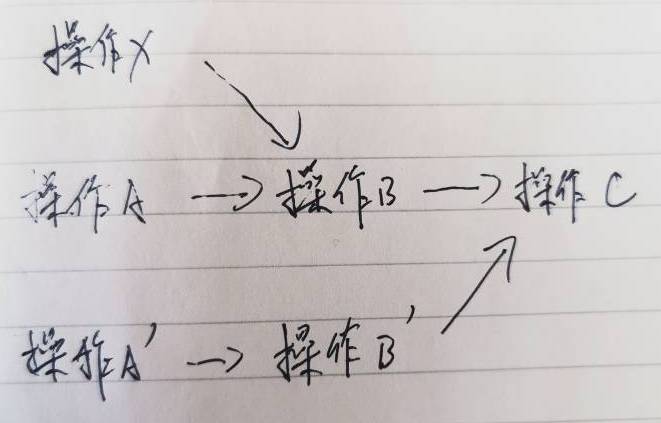 操作X
操作A → 操作B → 操作C
操作A' → 操作B'